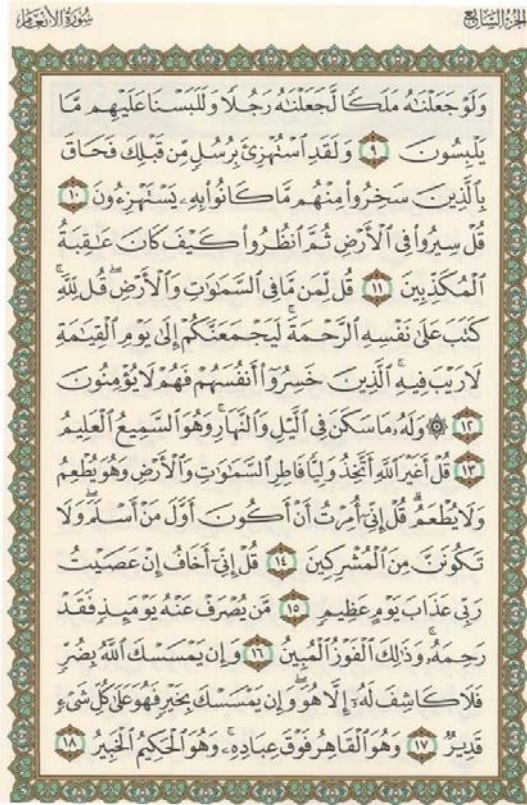 الجزء السابع
سورة الأنعام
وَلَوْ جَعَلْنَٰهُ مَلَكًا لَّجَعَلْنَٰهُ رَجُلًا وَلَلَبَسْنَا عَلَيْهِم مَّا
يَلْبِسُونَ ٩ وَلَقَدِ ٱسْتُهْزِئَ بِرُسُلٍ مِّن قَبْلِكَ فَحَاقَ
بِٱلَّذِينَ سَخِرُوا۟ مِنْهُم مَّا كَانُوا۟ بِهِۦ يَسْتَهْزِءُونَ ١٠
قُلْ سِيرُوا۟ فِى ٱلْأَرْضِ ثُمَّ ٱنظُرُوا۟ كَيْفَ كَانَ عَٰقِبَةُ
ٱلْمُكَذِّبِينَ ١١ قُل لِّمَن مَّا فِى ٱلسَّمَٰوَٰتِ وَٱلْأَرْضِ ۖ قُل لِّلَّهِ ۚ
كَتَبَ عَلَىٰ نَفْسِهِ ٱلرَّحْمَةَ ۚ لَيَجْمَعَنَّكُمْ إِلَىٰ يَوْمِ ٱلْقِيَٰمَةِ
لَا رَيْبَ فِيهِ ۚ ٱلَّذِينَ خَسِرُوٓا۟ أَنفُسَهُمْ فَهُمْ لَا يُؤْمِنُونَ
١٢ ۞ وَلَهُۥ مَا سَكَنَ فِى ٱلَّيْلِ وَٱلنَّهَارِ ۚ وَهُوَ ٱلسَّمِيعُ ٱلْعَلِيمُ
١٣ قُلْ أَغَيْرَ ٱللَّهِ أَتَّخِذُ وَلِيًّا فَاطِرِ ٱلسَّمَٰوَٰتِ وَٱلْأَرْضِ وَهُوَ يُطْعِمُ
وَلَا يُطْعَمُ ۗ قُلْ إِنِّىٓ أُمِرْتُ أَنْ أَكُونَ أَوَّلَ مَنْ أَسْلَمَ ۖ وَلَا
تَكُونَنَّ مِنَ ٱلْمُشْرِكِينَ ١٤ قُلْ إِنِّىٓ أَخَافُ إِنْ عَصَيْتُ
رَبِّى عَذَابَ يَوْمٍ عَظِيمٍ ١٥ مَّن يُصْرَفْ عَنْهُ يَوْمَئِذٍ فَقَدْ
رَحِمَهُۥ ۚ وَذَٰلِكَ ٱلْفَوْزُ ٱلْمُبِينُ ١٦ وَإِن يَمْسَسْكَ ٱللَّهُ بِضُرٍّ
فَلَا كَاشِفَ لَهُۥٓ إِلَّا هُوَ ۖ وَإِن يَمْسَسْكَ بِخَيْرٍ فَهُوَ عَلَىٰ كُلِّ شَىْءٍ
قَدِيرٌ ١٧ وَهُوَ ٱلْقَاهِرُ فَوْقَ عِبَادِهِۦ ۚ وَهُوَ ٱلْحَكِيمُ ٱلْخَبِيرُ ١٨